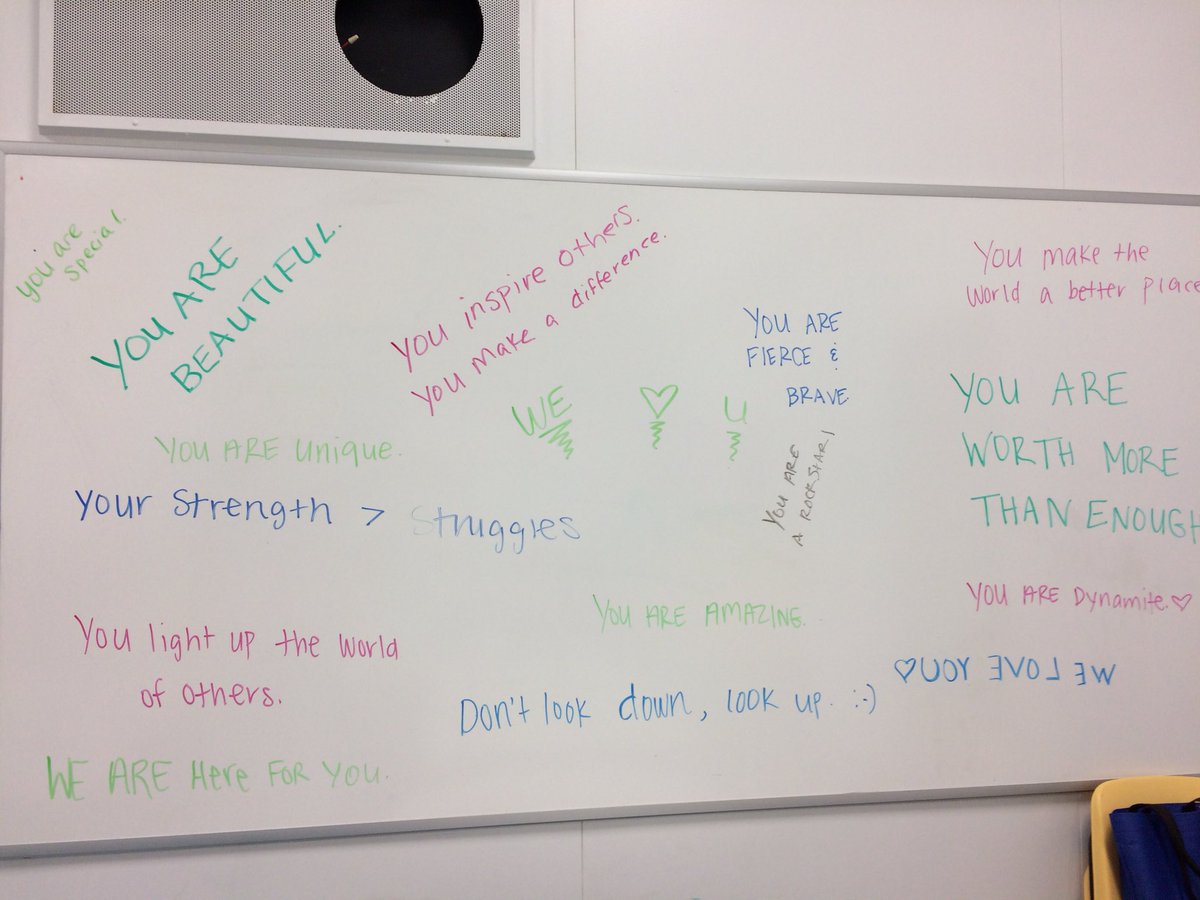 you are
special.
YOU ARE
BEAUTIFUL.
You inspire others.
You make a difference.
YOU ARE
FIERCE &
BRAVE
You make the
world a better place
WE ♡ U
YOU ARE
WORTH MORE
THAN ENOUGH
YOU ARE unique.
Your Strength > Struggles
YOU ARE
A ROCKSTAR!
YOU ARE Dynamite.♡
YOU ARE AMAZING.
You light up the world
of others.
WE LOVE YOU♡
Don't look down, look up. :-)
WE ARE Here FOR YOU.